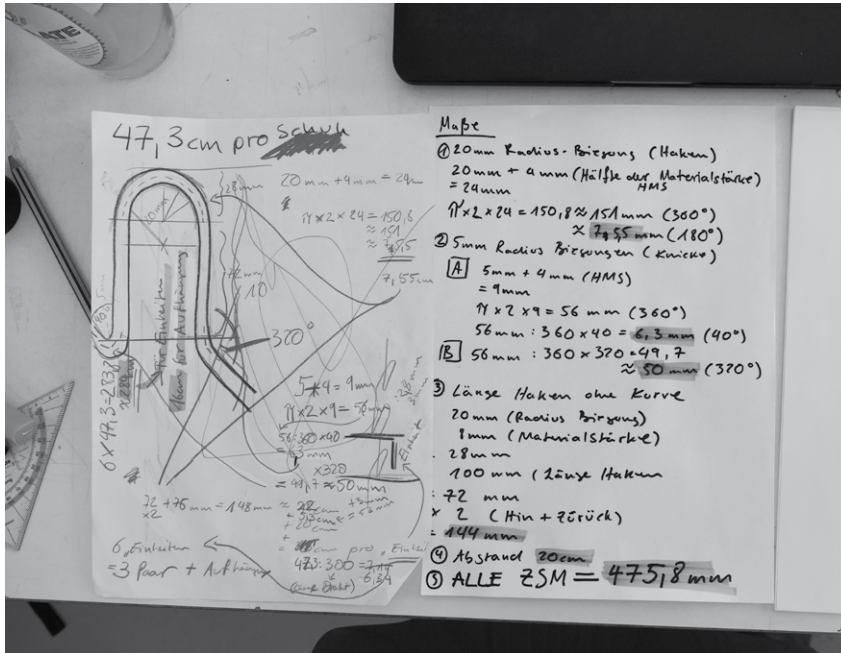 47,3cm pro Schuh
24mm
20 mm + 4mm = 24m
π x 2 x 24 = 150,8
≈ 151
≈ 7,5,5
7,55cm
20mm
72mm
10
320°
Für Einheiten
16cm für Aufhängung
6 x 47,3 = 283,8
5+4 = 9mm
π x 2 x 9 = 56mm
56:360 x 40
= 6,3 mm
x320
= 49,7 ≈ 50mm
Einheit
72 + 76 mm = 148 mm
x2
+ 20cm
cm pro Einheit
6 Einheiten
= 3 Paar + Aufhängung
Maße
① 20mm Radius-Biegung (Haken)
20mm + 4mm (Hälfte der Materialstärke)
HMS
= 24mm
π x 2 x 24 = 150,8 ≈ 151mm (360°)
≈ 7,5,5 mm (180°)
② 5mm Radius Biegungen (Knicke)
A 5mm + 4mm (HMS)
= 9mm
π x 2 x 9 = 56 mm (360°)
56mm : 360 x 40 = 6,3mm (40°)
B 56mm : 360 x 320 = 49,7
≈ 50 mm (320°)
③ Länge Haken ohne Kurve
20mm (Radius Biegung)
8mm (Materialstärke)
28mm
100mm (Länge Haken
: 72 mm
x 2 (Hin + Zurück)
= 144mm
④ Abstand 20cm
⑤ ALLE ZSM = 475,8mm